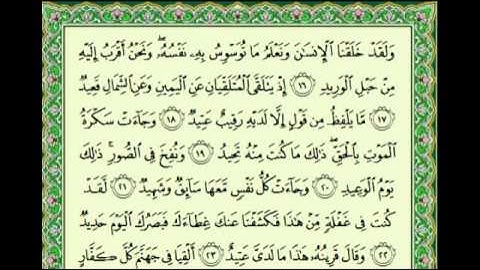 وَلَقَدْ خَلَقْنَا ٱلْإِنسَـٰنَ وَنَعْلَمُ مَا تُوَسْوِسُ بِهِۦ نَفْسُهُۥ ۖ وَنَحْنُ أَقْرَبُ إِلَيْهِ
مِنْ حَبْلِ ٱلْوَرِيدِ ١٦ إِذْ يَتَلَقَّى ٱلْمُتَلَقِّيَانِ عَنِ ٱلْيَمِينِ وَعَنِ ٱلشِّمَالِ قَعِيدٌ
١٧ مَّا يَلْفِظُ مِن قَوْلٍ إِلَّا لَدَيْهِ رَقِيبٌ عَتِيدٌ ١٨ وَجَآءَتْ سَكْرَةُ
ٱلْمَوْتِ بِٱلْحَقِّ ۖ ذَٰلِكَ مَا كُنتَ مِنْهُ تَحِيدُ ١٩ وَنُفِخَ فِى ٱلصُّورِ ۚ ذَٰلِكَ
يَوْمُ ٱلْوَعِيدِ ٢٠ وَجَآءَتْ كُلُّ نَفْسٍ مَّعَهَا سَآئِقٌ وَشَهِيدٌ ٢١ لَّقَدْ
كُنتَ فِى غَفْلَةٍ مِّنْ هَـٰذَا فَكَشَفْنَا عَنكَ غِطَآءَكَ فَبَصَرُكَ ٱلْيَوْمَ حَدِيدٌ
٢٢ وَقَالَ قَرِينُهُۥ هَـٰذَا مَا لَدَىَّ عَتِيدٌ ٢٣ أَلْقِيَا فِى جَهَنَّمَ كُلَّ كَفَّارٍ